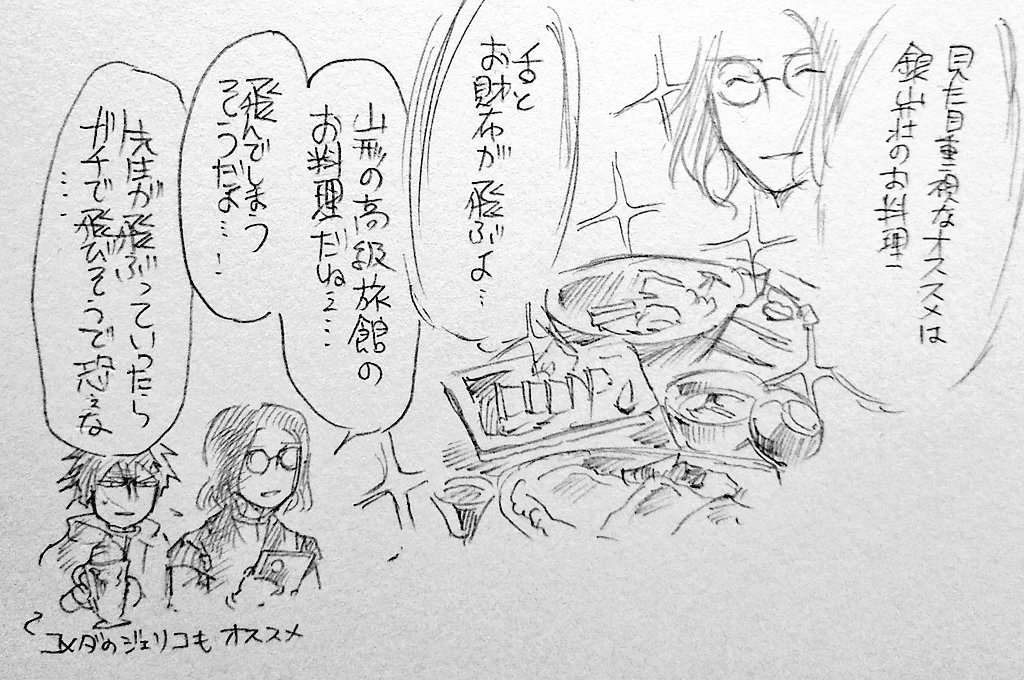 見た目重視なオススメは
銀山荘のお料理
舌と
お財布が飛ぶよ…
山形の高級旅館の
お料理だねぇ…
飛んでしまう
そうだよ…!
先生が飛ぶっていったら
ガチで飛びそうで恐ぇな
……
コメダのジェリコもオススメ